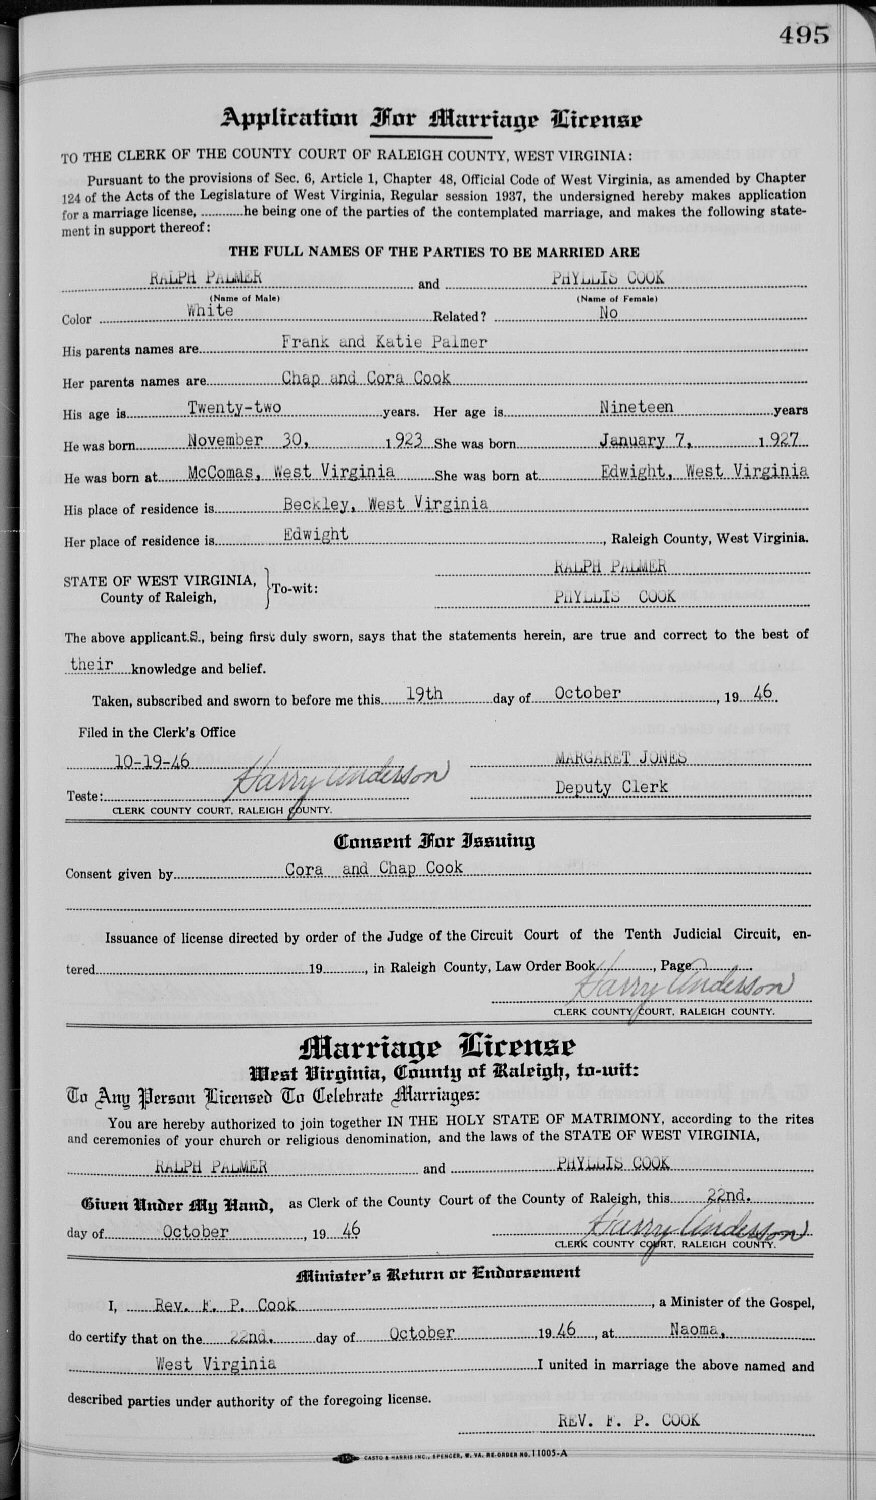 495
Application For Marriage License
TO THE CLERK OF THE COUNTY COURT OF RALEIGH COUNTY, WEST VIRGINIA:
Pursuant to the provisions of Sec. 6, Article 1, Chapter 48, Official Code of West Virginia, as amended by Chapter
124 of the Acts of the Legislature of West Virginia, Regular session 1937, the undersigned hereby makes application
for a marriage license, ............he being one of the parties of the contemplated marriage, and makes the following state-
ment in support thereof:
THE FULL NAMES OF THE PARTIES TO BE MARRIED ARE
RALPH PALMER and PHYLLIS COOK
(Name of Male) (Name of Female)
Color White Related? No
His parents names are Frank and Katie Palmer
Her parents names are Chap and Cora Cook
His age is Twenty-two years. Her age is Nineteen years
He was born November 30, 1923 She was born January 7, 1927
He was born at McComas, West Virginia She was born at Edwight, West Virginia
His place of residence is Beckley, West Virginia
Her place of residence is Edwight, Raleigh County, West Virginia.
RALPH PALMER
STATE OF WEST VIRGINIA,
County of Raleigh, } To-wit:
PHYLLIS COOK
The above applicant.S., being first duly sworn, says that the statements herein, are true and correct to the best of
their knowledge and belief.
Taken, subscribed and sworn to before me this 19th day of October, 19 46.
Filed in the Clerk's Office
10-19-46 MARGARET JONES
Teste: Harry Anderson Deputy Clerk
CLERK COUNTY COURT, RALEIGH COUNTY.
Consent For Issuing
Consent given by Cora and Chap Cook
Issuance of license directed by order of the Judge of the Circuit Court of the Tenth Judicial Circuit, en-
tered 19........, in Raleigh County, Law Order Book, Page
Harry Anderson
CLERK COUNTY COURT, RALEIGH COUNTY.
Marriage License
West Virginia, County of Raleigh, to-wit:
To Any Person Licensed To Celebrate Marriages:
You are hereby authorized to join together IN THE HOLY STATE OF MATRIMONY, according to the rites
and ceremonies of your church or religious denomination, and the laws of the STATE OF WEST VIRGINIA,
RALPH PALMER and PHYLLIS COOK
Given Under My Hand, as Clerk of the County Court of the County of Raleigh, this 22nd.
day of October, 19 46 Harry Anderson
CLERK COUNTY COURT, RALEIGH COUNTY.
Minister's Return or Endorsement
I, Rev. F. P. Cook, a Minister of the Gospel,
do certify that on the 22nd. day of October 19 46, at Naoma,
West Virginia I united in marriage the above named and
described parties under authority of the foregoing license.
REV. F. P. COOK
CASTO & HARRIS INC., SPENCER, W. VA. RE-ORDER NO. 11005-A